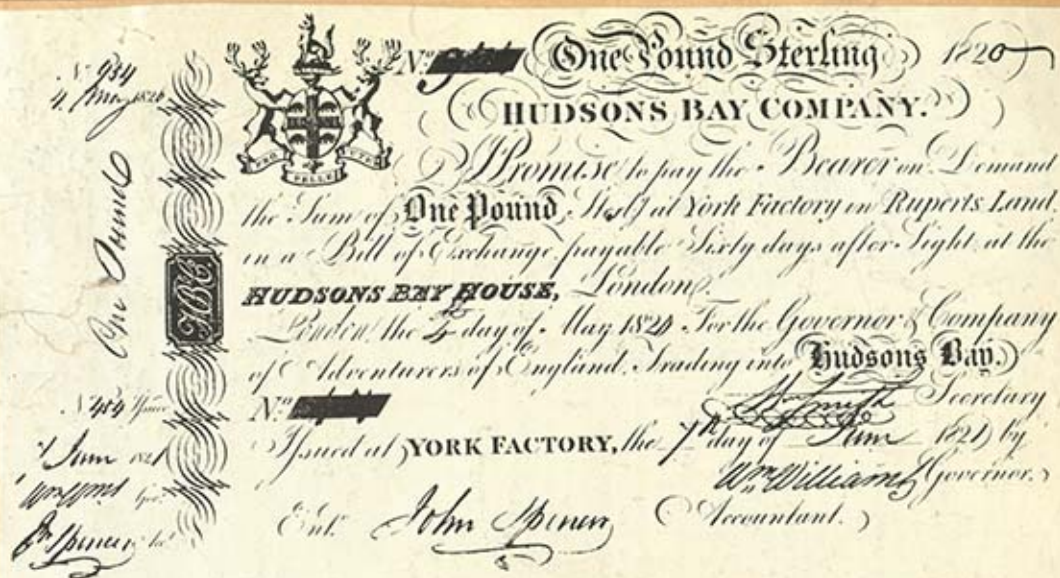 No. 984
4 May 1820
One Pound
HBC
No. 484 Issued
7 June 1821
Wm Wms Gov.
Jn Spencer
PRO PELLE CUTEM
No. One Pound Sterling 1820
HUDSONS BAY COMPANY.
I Promise to pay the Bearer on Demand
the Sum of One Pound Sterlg. at York Factory in Ruperts Land
in a Bill of Exchange payable Sixty days after Sight at the
HUDSONS BAY HOUSE, London.
London the 4 day of May 1820 For the Governor & Company
of Adventurers of England Trading into Hudsons Bay.
No. Wm Smith Secretary
Issued at YORK FACTORY, the 7th day of June 1821 by
Wm Williams Governor.
Ent. John Spencer Accountant.